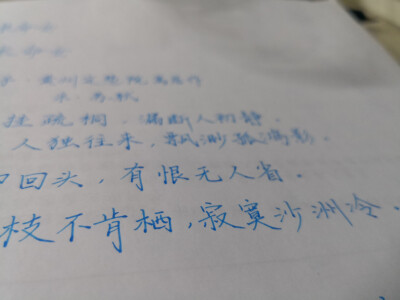 子·黄州定慧院寓居作
宋·苏轼
挂疏桐,漏断人初静.
人独往来,飘渺孤鸿影.
回头,有恨无人省.
枝不肯栖,寂寞沙洲冷.